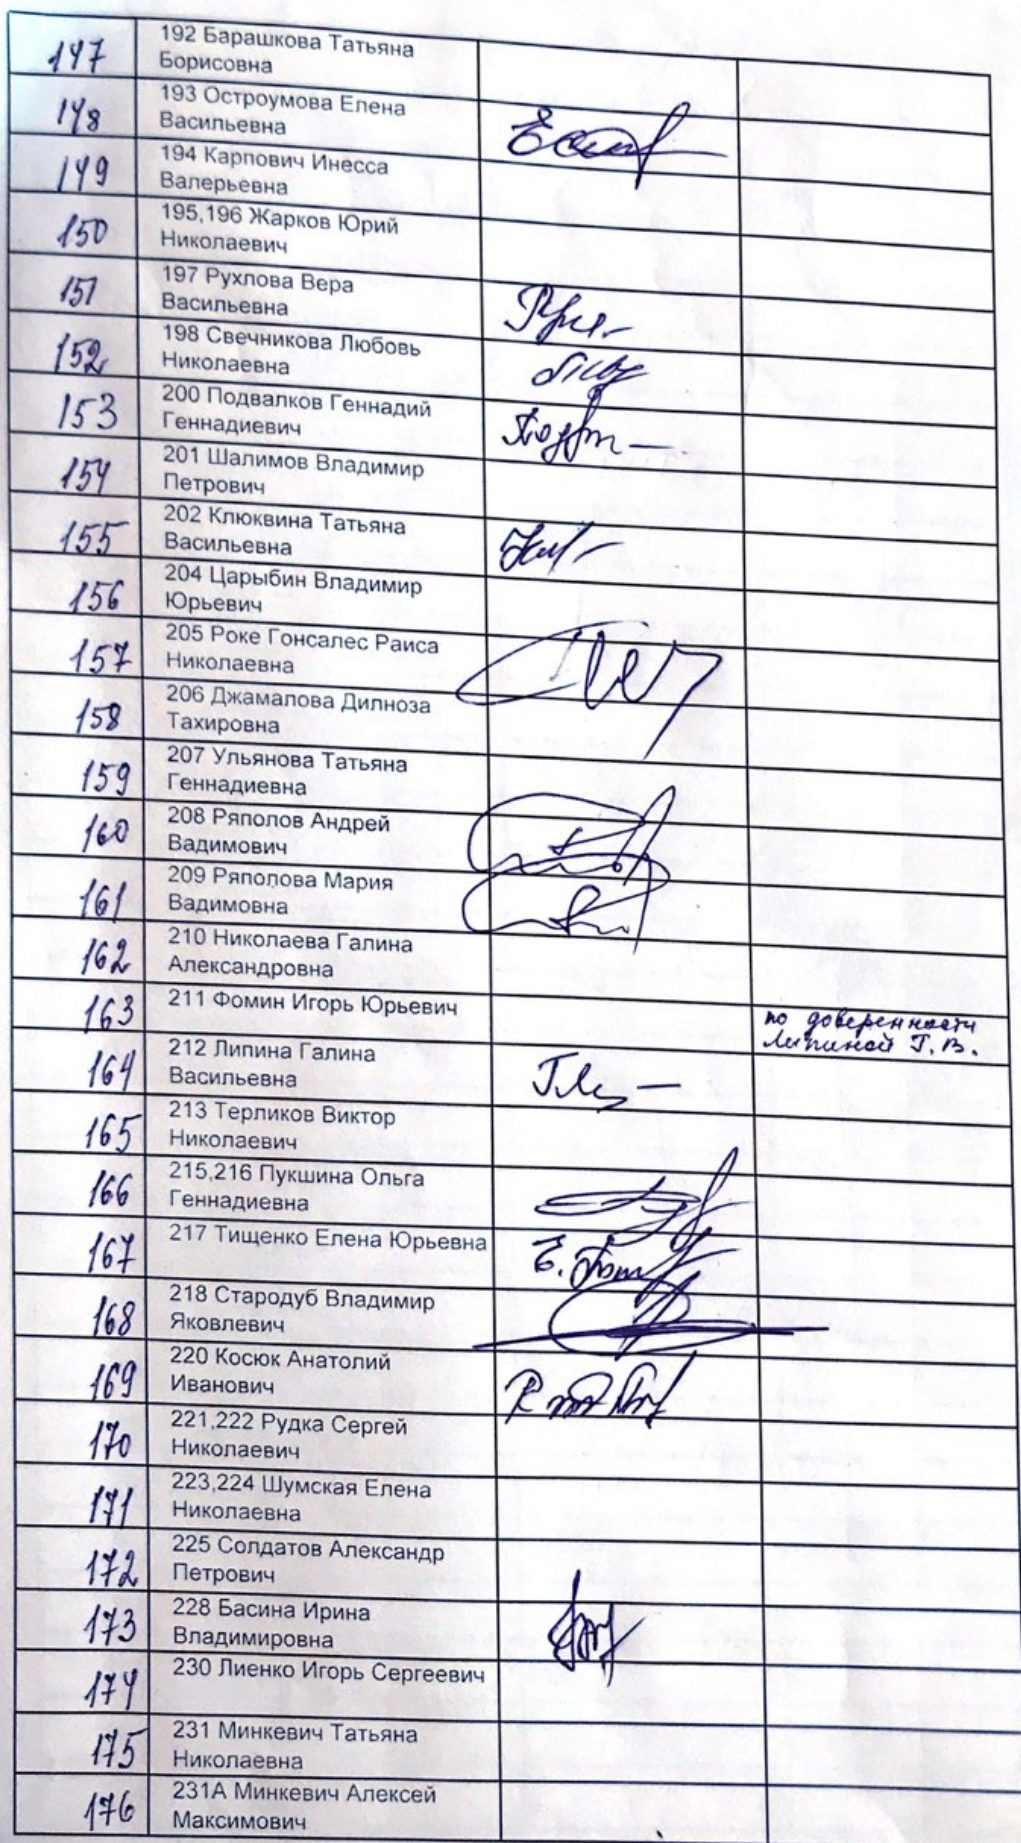 147 192 Барашкова Татьяна
Борисовна
148 193 Остроумова Елена
Васильевна
149 194 Карпович Инесса
Валерьевна
150 195,196 Жарков Юрий
Николаевич
151 197 Рухлова Вера
Васильевна
152 198 Свечникова Любовь
Николаевна
153 200 Подвалков Геннадий
Геннадиевич
154 201 Шалимов Владимир
Петрович
155 202 Клюквина Татьяна
Васильевна
156 204 Царыбин Владимир
Юрьевич
157 205 Роке Гонсалес Раиса
Николаевна
158 206 Джамалова Дилноза
Тахировна
159 207 Ульянова Татьяна
Геннадиевна
160 208 Ряполов Андрей
Вадимович
161 209 Ряполова Мария
Вадимовна
162 210 Николаева Галина
Александровна
163 211 Фомин Игорь Юрьевич по доверенности
Липиной Г.В.
164 212 Липина Галина
Васильевна
165 213 Терликов Виктор
Николаевич
166 215,216 Пукшина Ольга
Геннадиевна
167 217 Тищенко Елена Юрьевна
168 218 Стародуб Владимир
Яковлевич
169 220 Косюк Анатолий
Иванович
170 221,222 Рудка Сергей
Николаевич
171 223,224 Шумская Елена
Николаевна
172 225 Солдатов Александр
Петрович
173 228 Басина Ирина
Владимировна
174 230 Лиенко Игорь Сергеевич
175 231 Минкевич Татьяна
Николаевна
176 231А Минкевич Алексей
Максимович